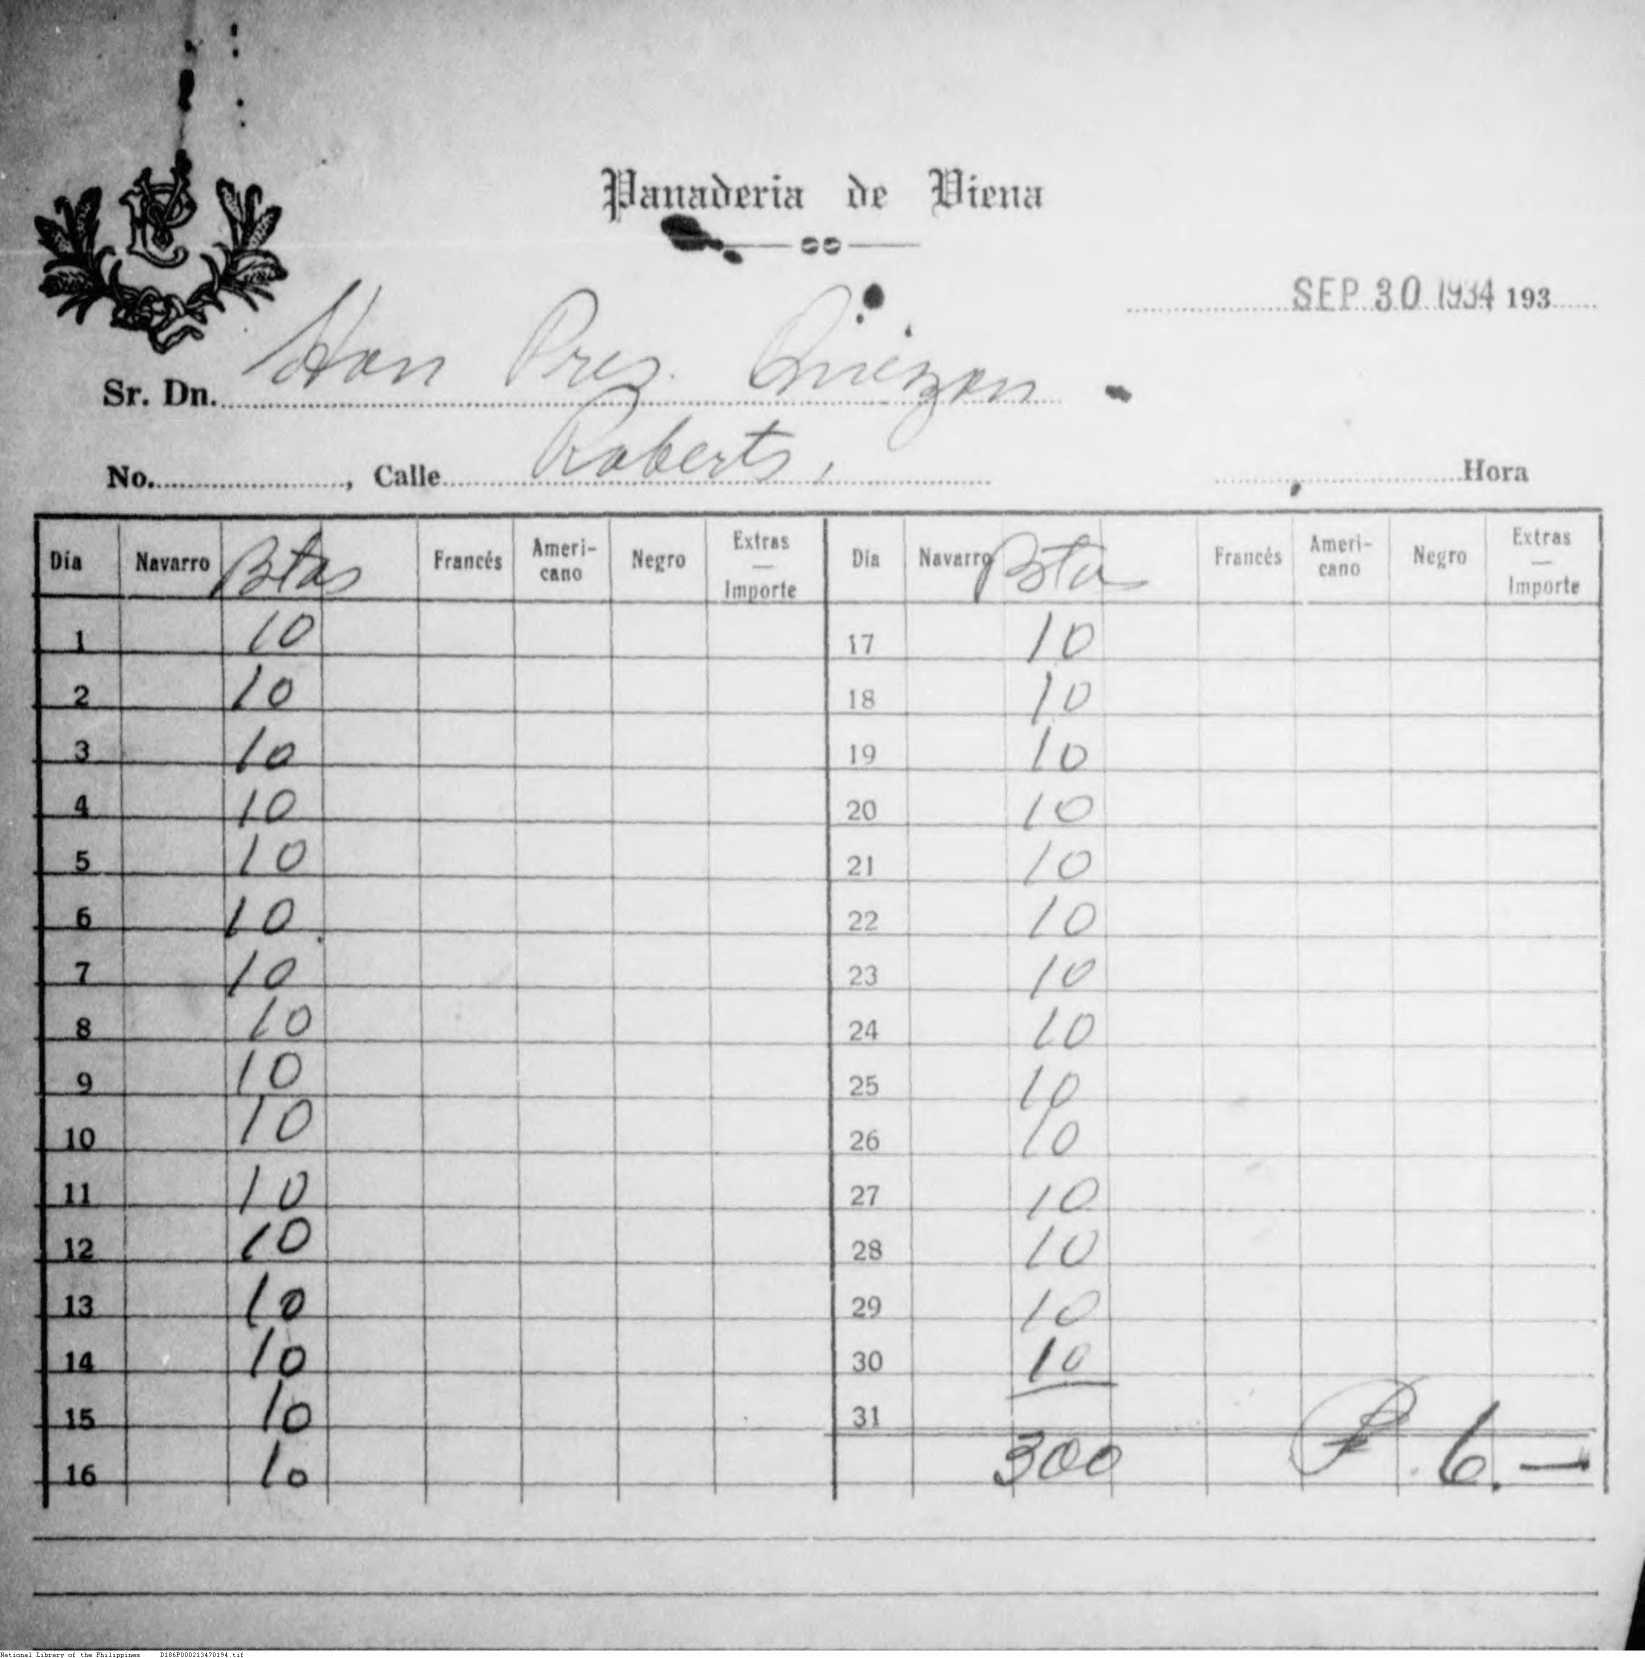 Panaderia de Viena
SEP 30 1934 193
Sr. Dn. Hon Pres. Quezon
No. , Calle Roberts, Hora
Día Navarro Btas Francés Ameri-cano Negro Extras — Importe Día Navarro Btas Francés Ameri-cano Negro Extras — Importe
1 10 17 10
2 10 18 10
3 10 19 10
4 10 20 10
5 10 21 10
6 10 22 10
7 10 23 10
8 10 24 10
9 10 25 10
10 10 26 10
11 10 27 10
12 10 28 10
13 10 29 10
14 10 30 10
15 10 31
16 10 300 ₱ 6.—
National Library of the Philippines D186P000213470194.tif